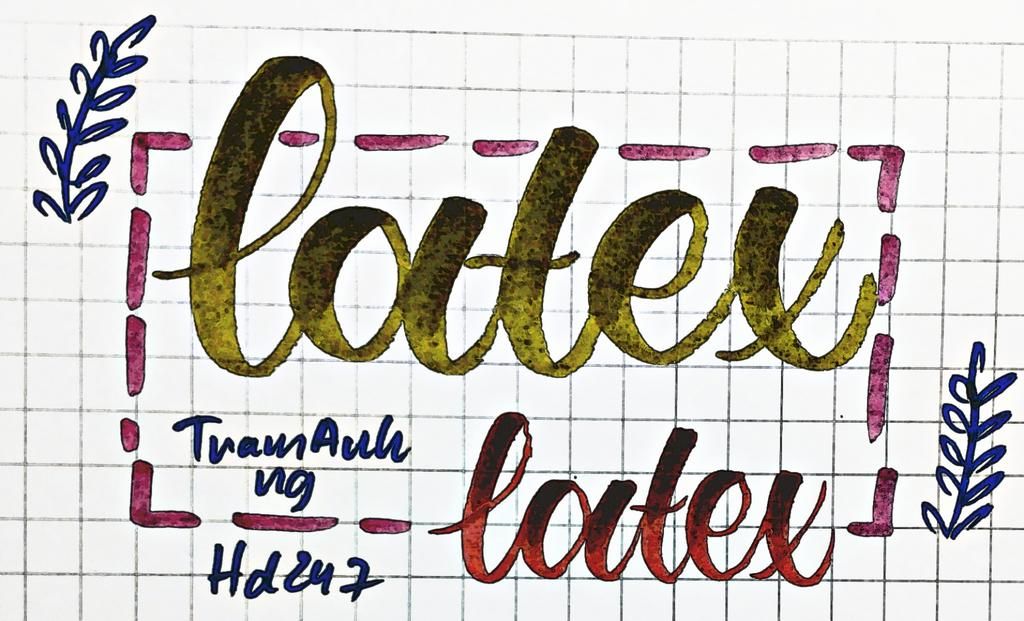 latex
TramAnh
ng
latex
Hd247